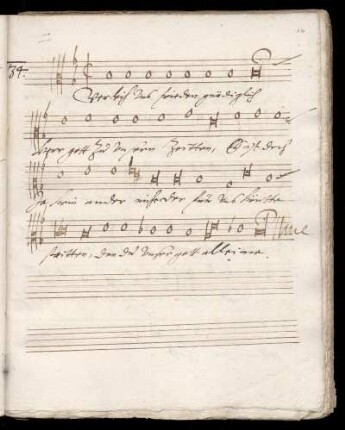 34.
Verleih uns frieden gnediglich
Herr gott zu unsern Zeitten, Es ist doch
ja kein ander nicht der für uns könte
streitten, den du unser gott alleine.